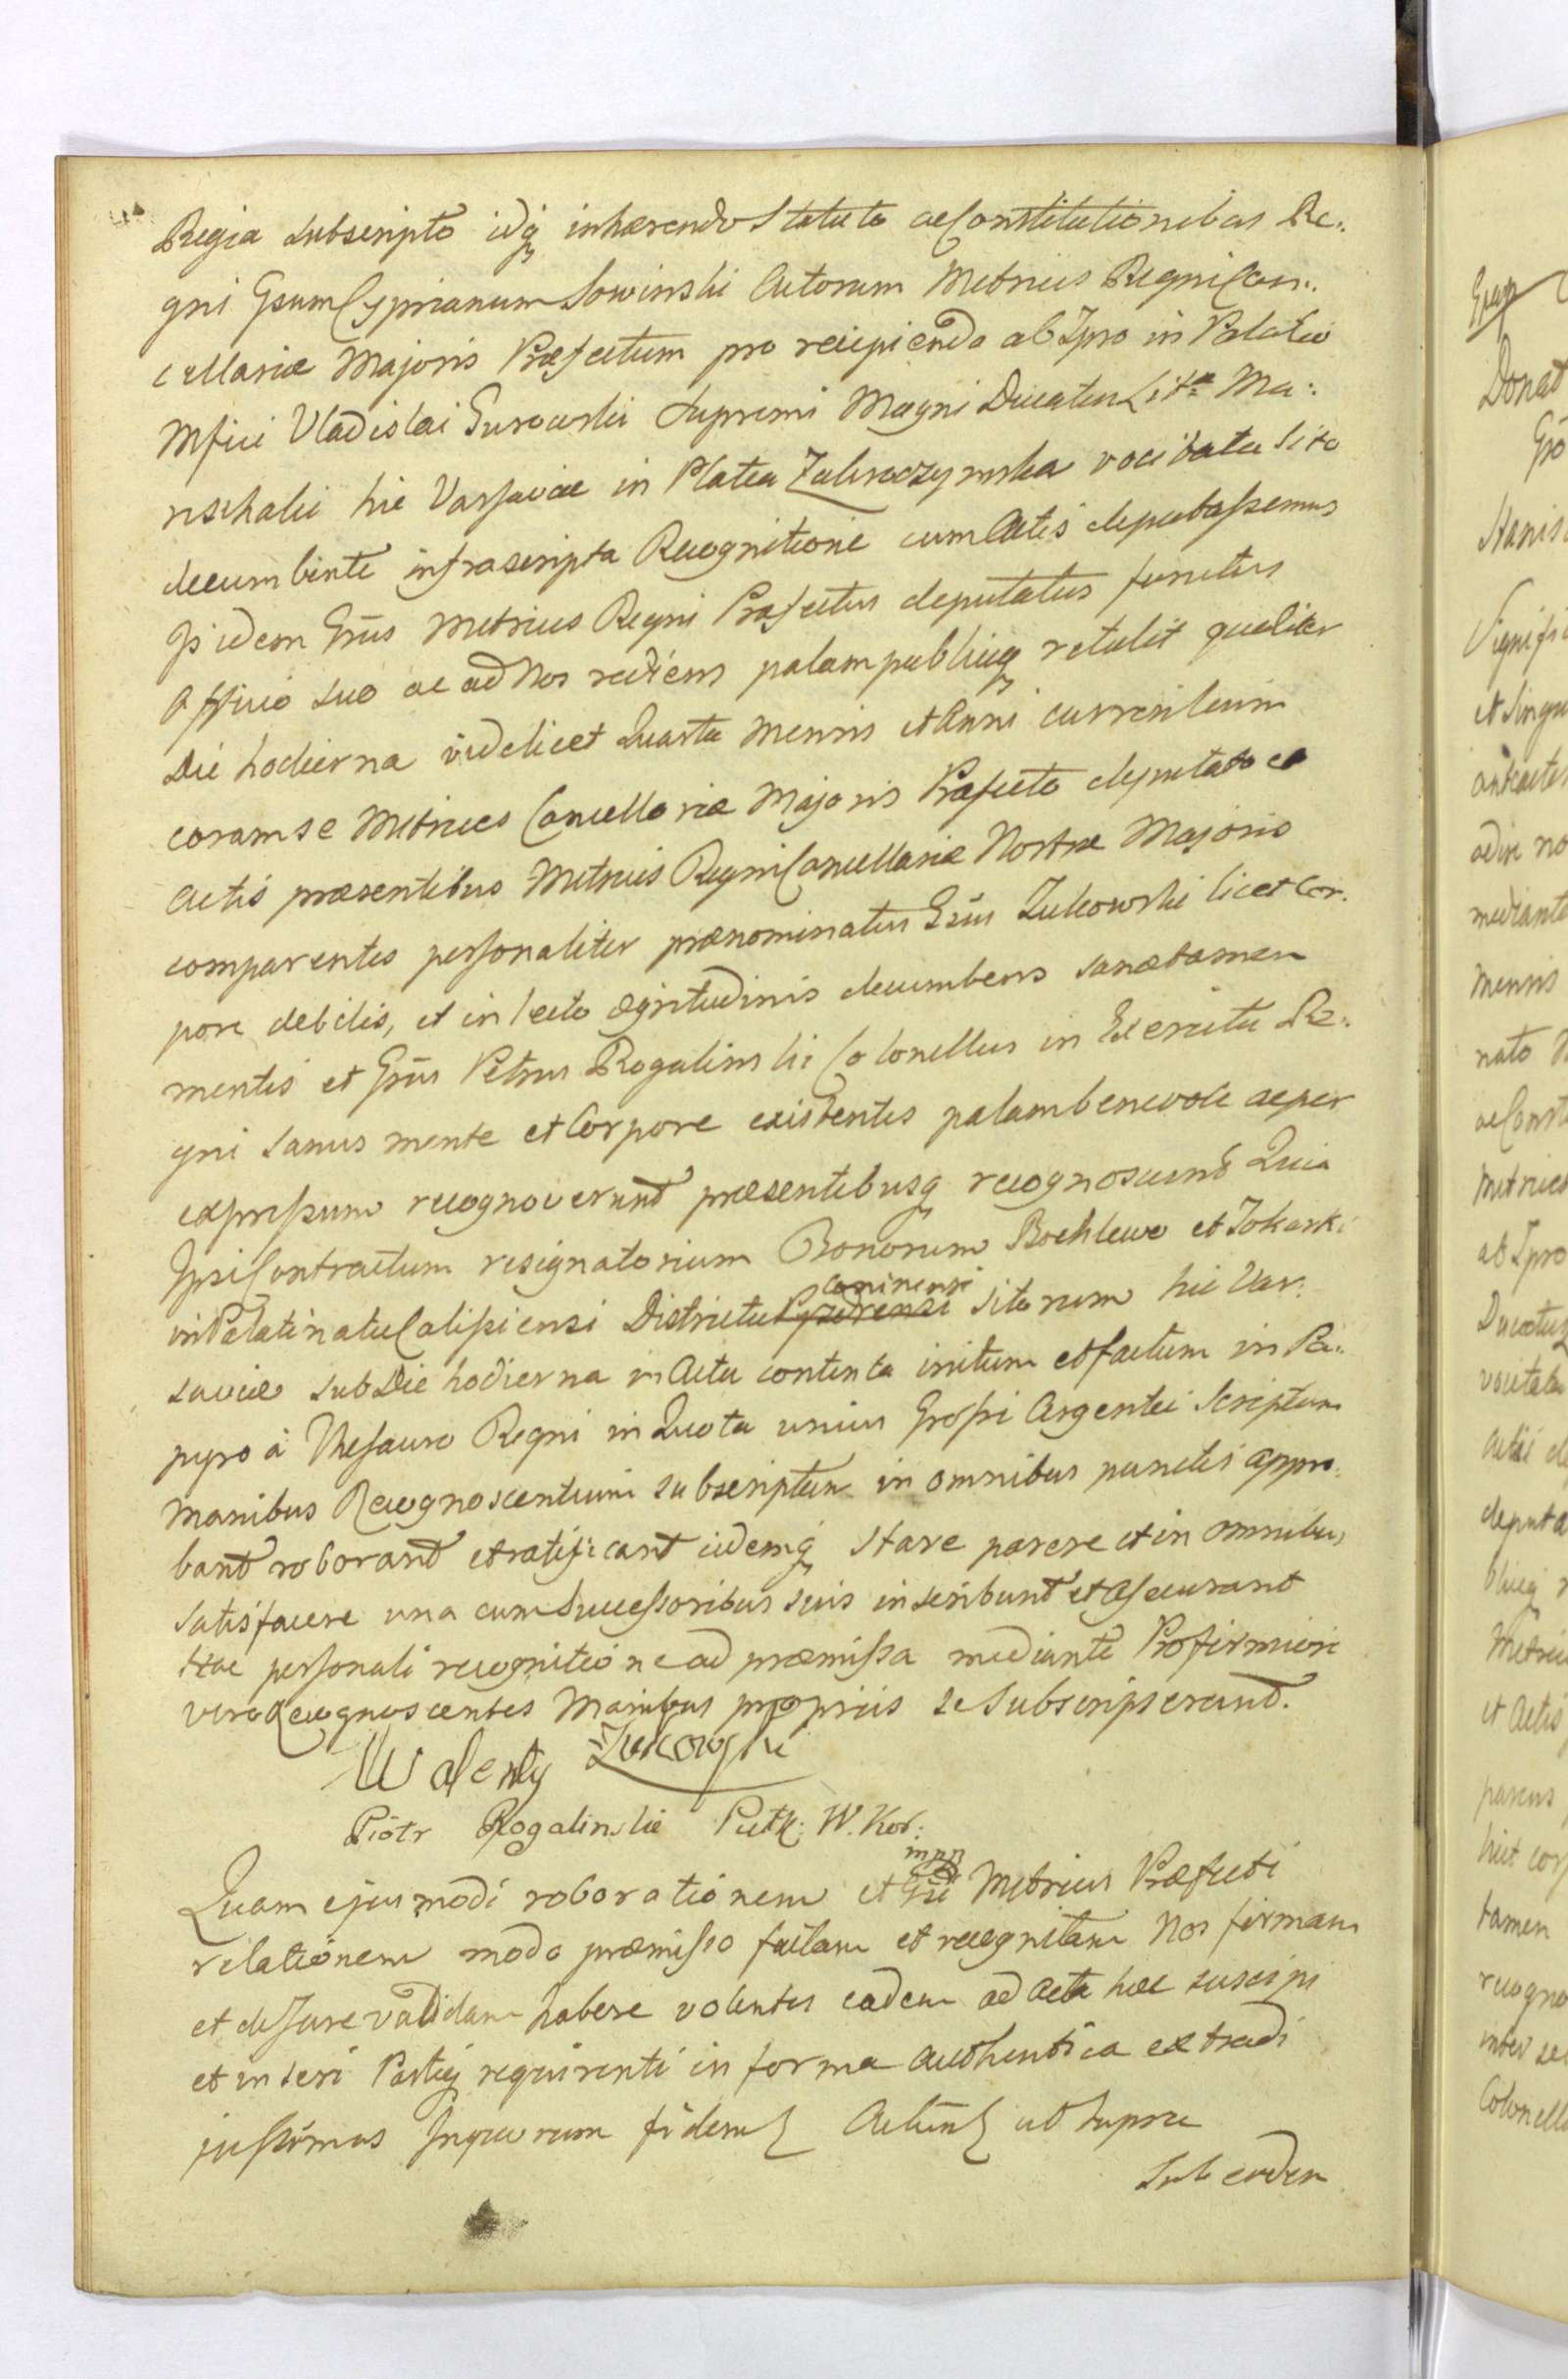 Regia subscripto idq inhærendo Statuto ac Constitutionibus Re:
gni Gsum Cyprianum Sowinski Actorum Metrices Regni Can:
cellariæ Majoris Præfectum pro recipienda ab Ipso in Palatio
Mfici Vladislai Gurowski Supremi Magni Ducatus Litæ Ma:
rschalci hic Varsaviæ in Platea Zakroczymska vocitata sito
decumbente infrascripta Recognitione cum Actis deputassemus
Is idem Gsus Metrices Regni Præfectus deputatus functus
Officio suo ac ad Nos rediens palam publiceq retulit qualiter
Die hodierna videlicet Quarta Mensis et Anni currentium
coram se Metrices Cancellariæ Majoris Præfecto deputato et
Actis præsentibus Metrices Regni Cancellariæ Nostræ Majoris
comparentes personaliter prænominatus Gsus Zukowski licet Cor:
pore debilis, et in lecto ægritudinis decumbens sanæ tamen
mentis et Gsus Petrus Rogalinski Colonellus in Exercitu Re:
gni sanus mente et Corpore existentes palam benevole ac per
expressum recognoverunt præsentibusq recognoscunt Quia
Ipsi Contractum resignatorium Bonorum Bochlewo et Tokarki
in Palatinatu Calissiensi Districtu Pyzdrensi Coninensi sitorum hic Var:
saviæ sub Die hodierna in Actu contenta initum et factum in Pa:
pyro à Thesauro Regni in Quota unius Grossi Argentei Scriptum
Manibus Recognoscentium subscriptum in omnibus punctis appro:
bant roborant et ratificant eidemq Stare parere et in Omnibus
satisfacere una cum Successoribus suis inscribunt et Assecurant
Hac personali recognitione ad præmissa mediante Pro firmiori
vero Recognoscentes Manibus propriis se Subscripserunt.
Walenty Zukowski
Piotr Rogalinski Putk: W. Kor:
mpp
Quam ejusmodi roborationem et Gsi Metrices Præfecti
relationem modo præmisso factam et recognitam Nos firmam
et de Jure validam habere volentes eadem ad Acta hæc suscipi
et inseri Partiq requirenti in forma authentica extradi
jussimus In quorum fidem Actum ut supra
Sub eadem